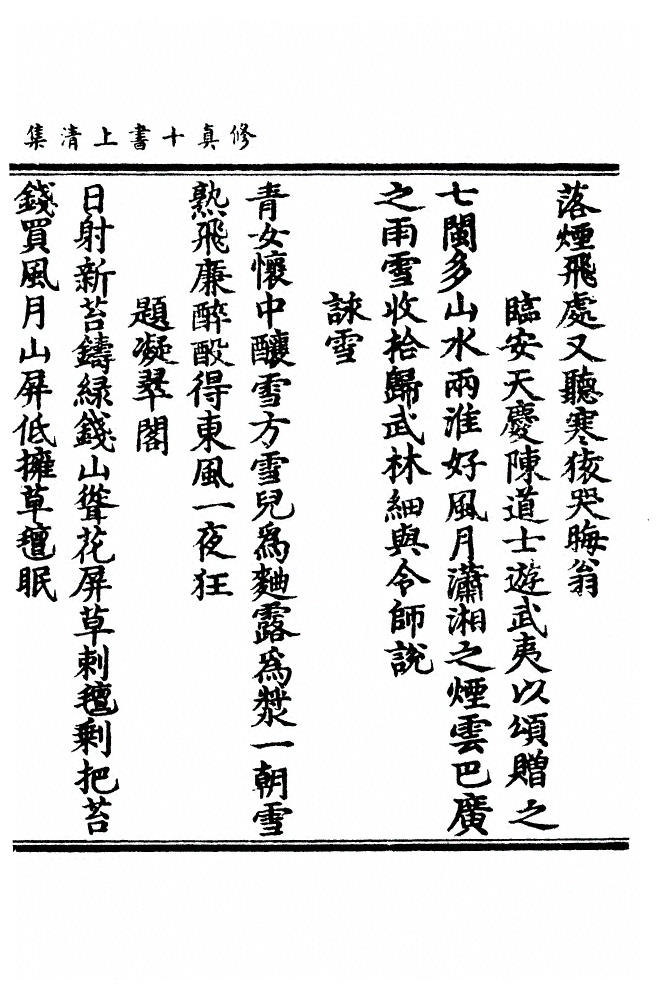 修真十書上清集
落煙飛處又聽寒猿哭晦翁
臨安天慶陳道士遊武夷以頌贈之
七閩多山水兩淮好風月瀟湘之煙雲巴廣
之雨雪收拾歸武林細與令師說
詠雪
青女懷中釀雪方雪兒為麯露為漿一朝雪
熟飛廉醉酘得東風一夜狂
題凝翠閣
日射新苔鑄綠錢山聳花屏草刺氊剩把苔
錢買風月山屏低擁草氊眠